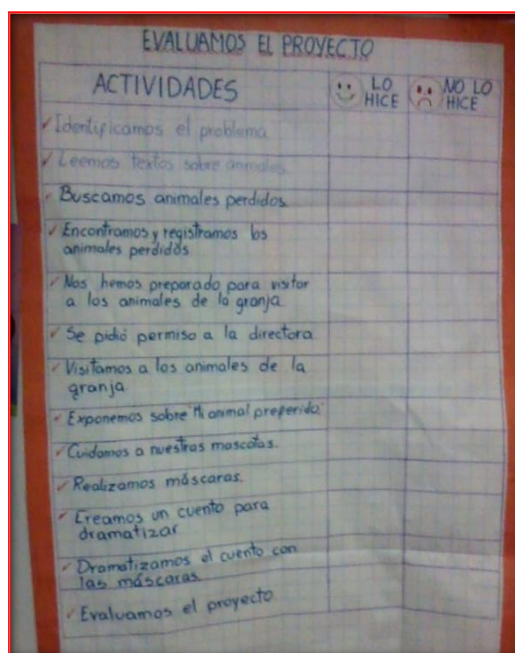 EVALUAMOS EL PROYECTO
ACTIVIDADES
LO HICE
NO LO HICE
✓ Identificamos el problema
✓ Leemos textos sobre animales
✓ Buscamos animales perdidos
✓ Encontramos y registramos los
animales perdidos
✓ Nos hemos preparado para visitar
a los animales de la granja
✓ Se pidió permiso a la directora
✓ Visitamos a los animales de la
granja
✓ Exponemos sobre "Mi animal preferido"
✓ Cuidamos a nuestras mascotas.
✓ Realizamos máscaras.
✓ Creamos un cuento para
dramatizar
✓ Dramatizamos el cuento con
las máscaras
✓ Evaluamos el proyecto